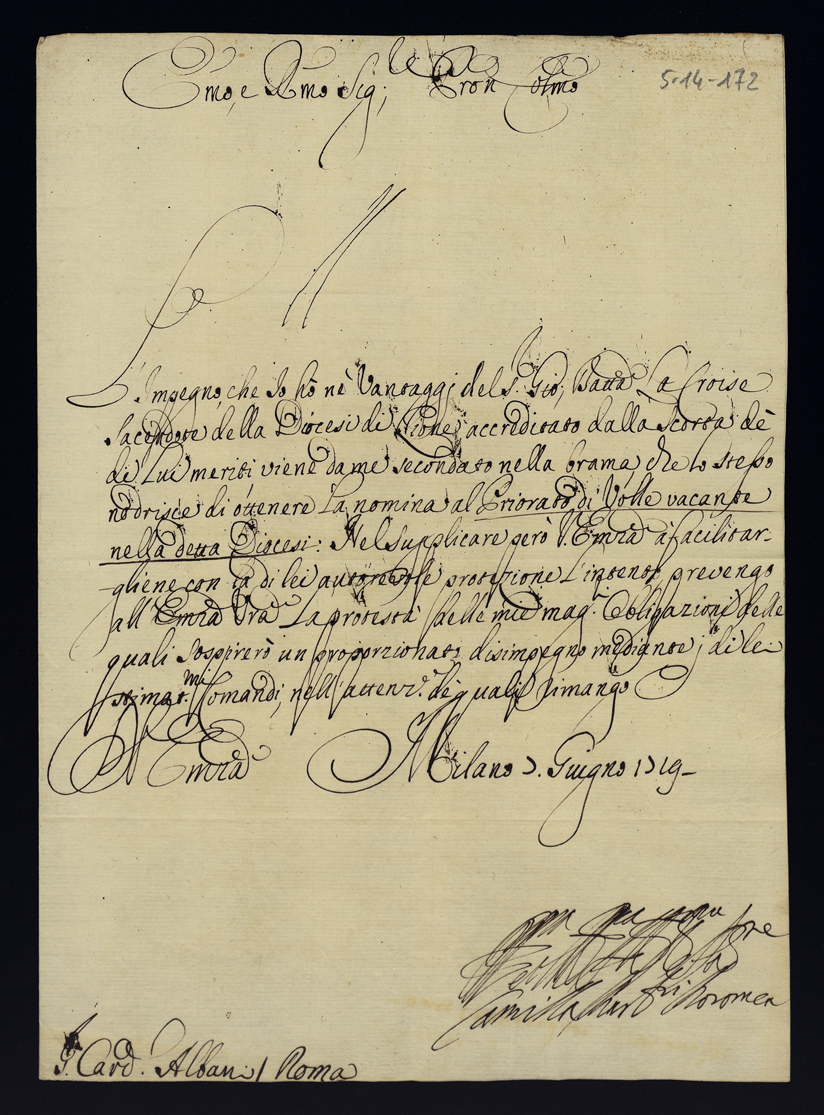 Emo, e Rmo Sig;re Pron Colmo
5-14-172
L'Impegno, che Io hò nè Vantaggj del S.r Gio; Batta La Croise
Sacerdote della Diocesi di Lione accreditato dalla Scorta dè
di Lui meriti viene da me secondato nella brama che lo stesso
nodrisce di ottenere la nomina al Priorato di Volle vacante
nella detta Diocesi: Nel supplicare però V. Emza à facilitar-
gliene con la di lei autorevole protezione l'intento, prevengo
all'Emza Vra La protesta delle mie mag.ri Obligazioni delle
quali sospirerò un proporzionato disimpegno mediante i di lei
stimat.mi Comandi, nell'attenz.e de quali rimango
D V Emza Milano 7. Giugno 1719-
Camilla Bor Borromea
S. Card. Albani / Roma